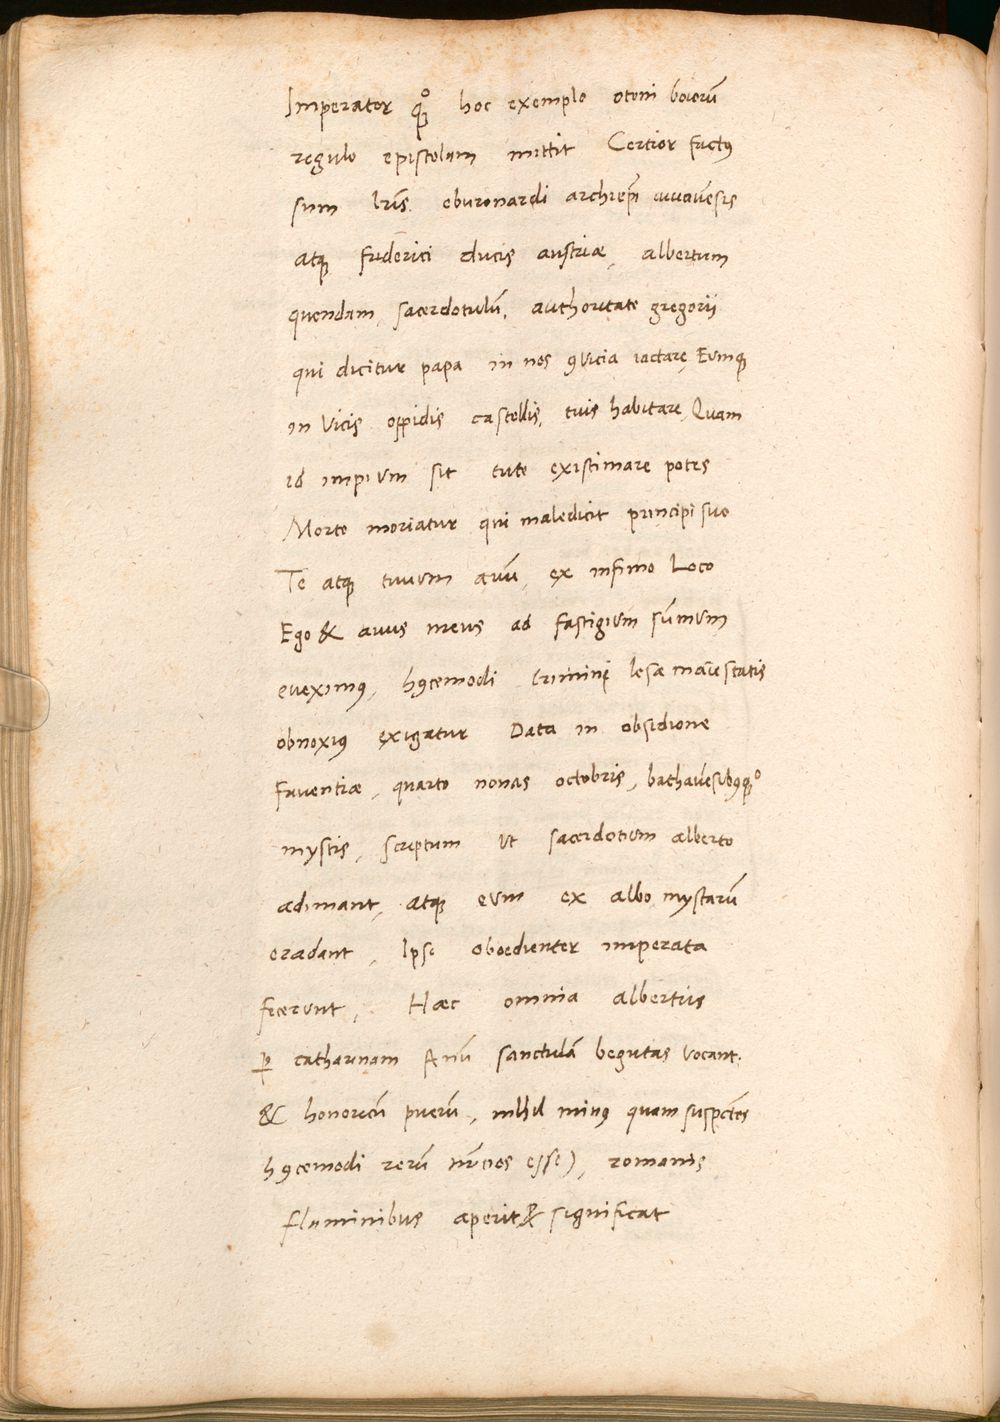 Imperator qꝫ° hoc exemplo otoni boiorū
regulo epistolam mittit Certior factꝰ
sum lr̄is eburonardi archiep̄i iuuauēsis
atqꝫ friderici ducis austriæ, albertum
quendam, sacerdotulū, authoritate gregorii
qui dicitur papa in nos ꝯuicia iactare, Eumqꝫ
in Vicis oppidis castellis, tuis habitare, Quam
id impium sit tute existimare potes
Morte moriatur qui maledicit principi suo
Te atqꝫ tuum auū, ex infimo Loco
Ego & auus meus ad fastigium sūmum
eueximꝰ, hꝰcemodi criminẹ lesæ maiestatis
obnoxiꝰ exigatur Data in obsidione
Fauentiæ, quarto nonas octobris, bathauēsibꝰqꝫ°
mystis, scriptum ut sacerdotium alberto
adimant, atqꝫ eum ex albo mystarū
eradant, Ipse oboedienter imperata
ficerunt, Hæc omnia albertus
ꝑ catharinam Anū sanctulā begutas vocant.
& honoricū puerū, nihil minꝰ quam suspectos
hꝰcemodi rerū nūcios esse), romanis
flaminibus aperit & significat